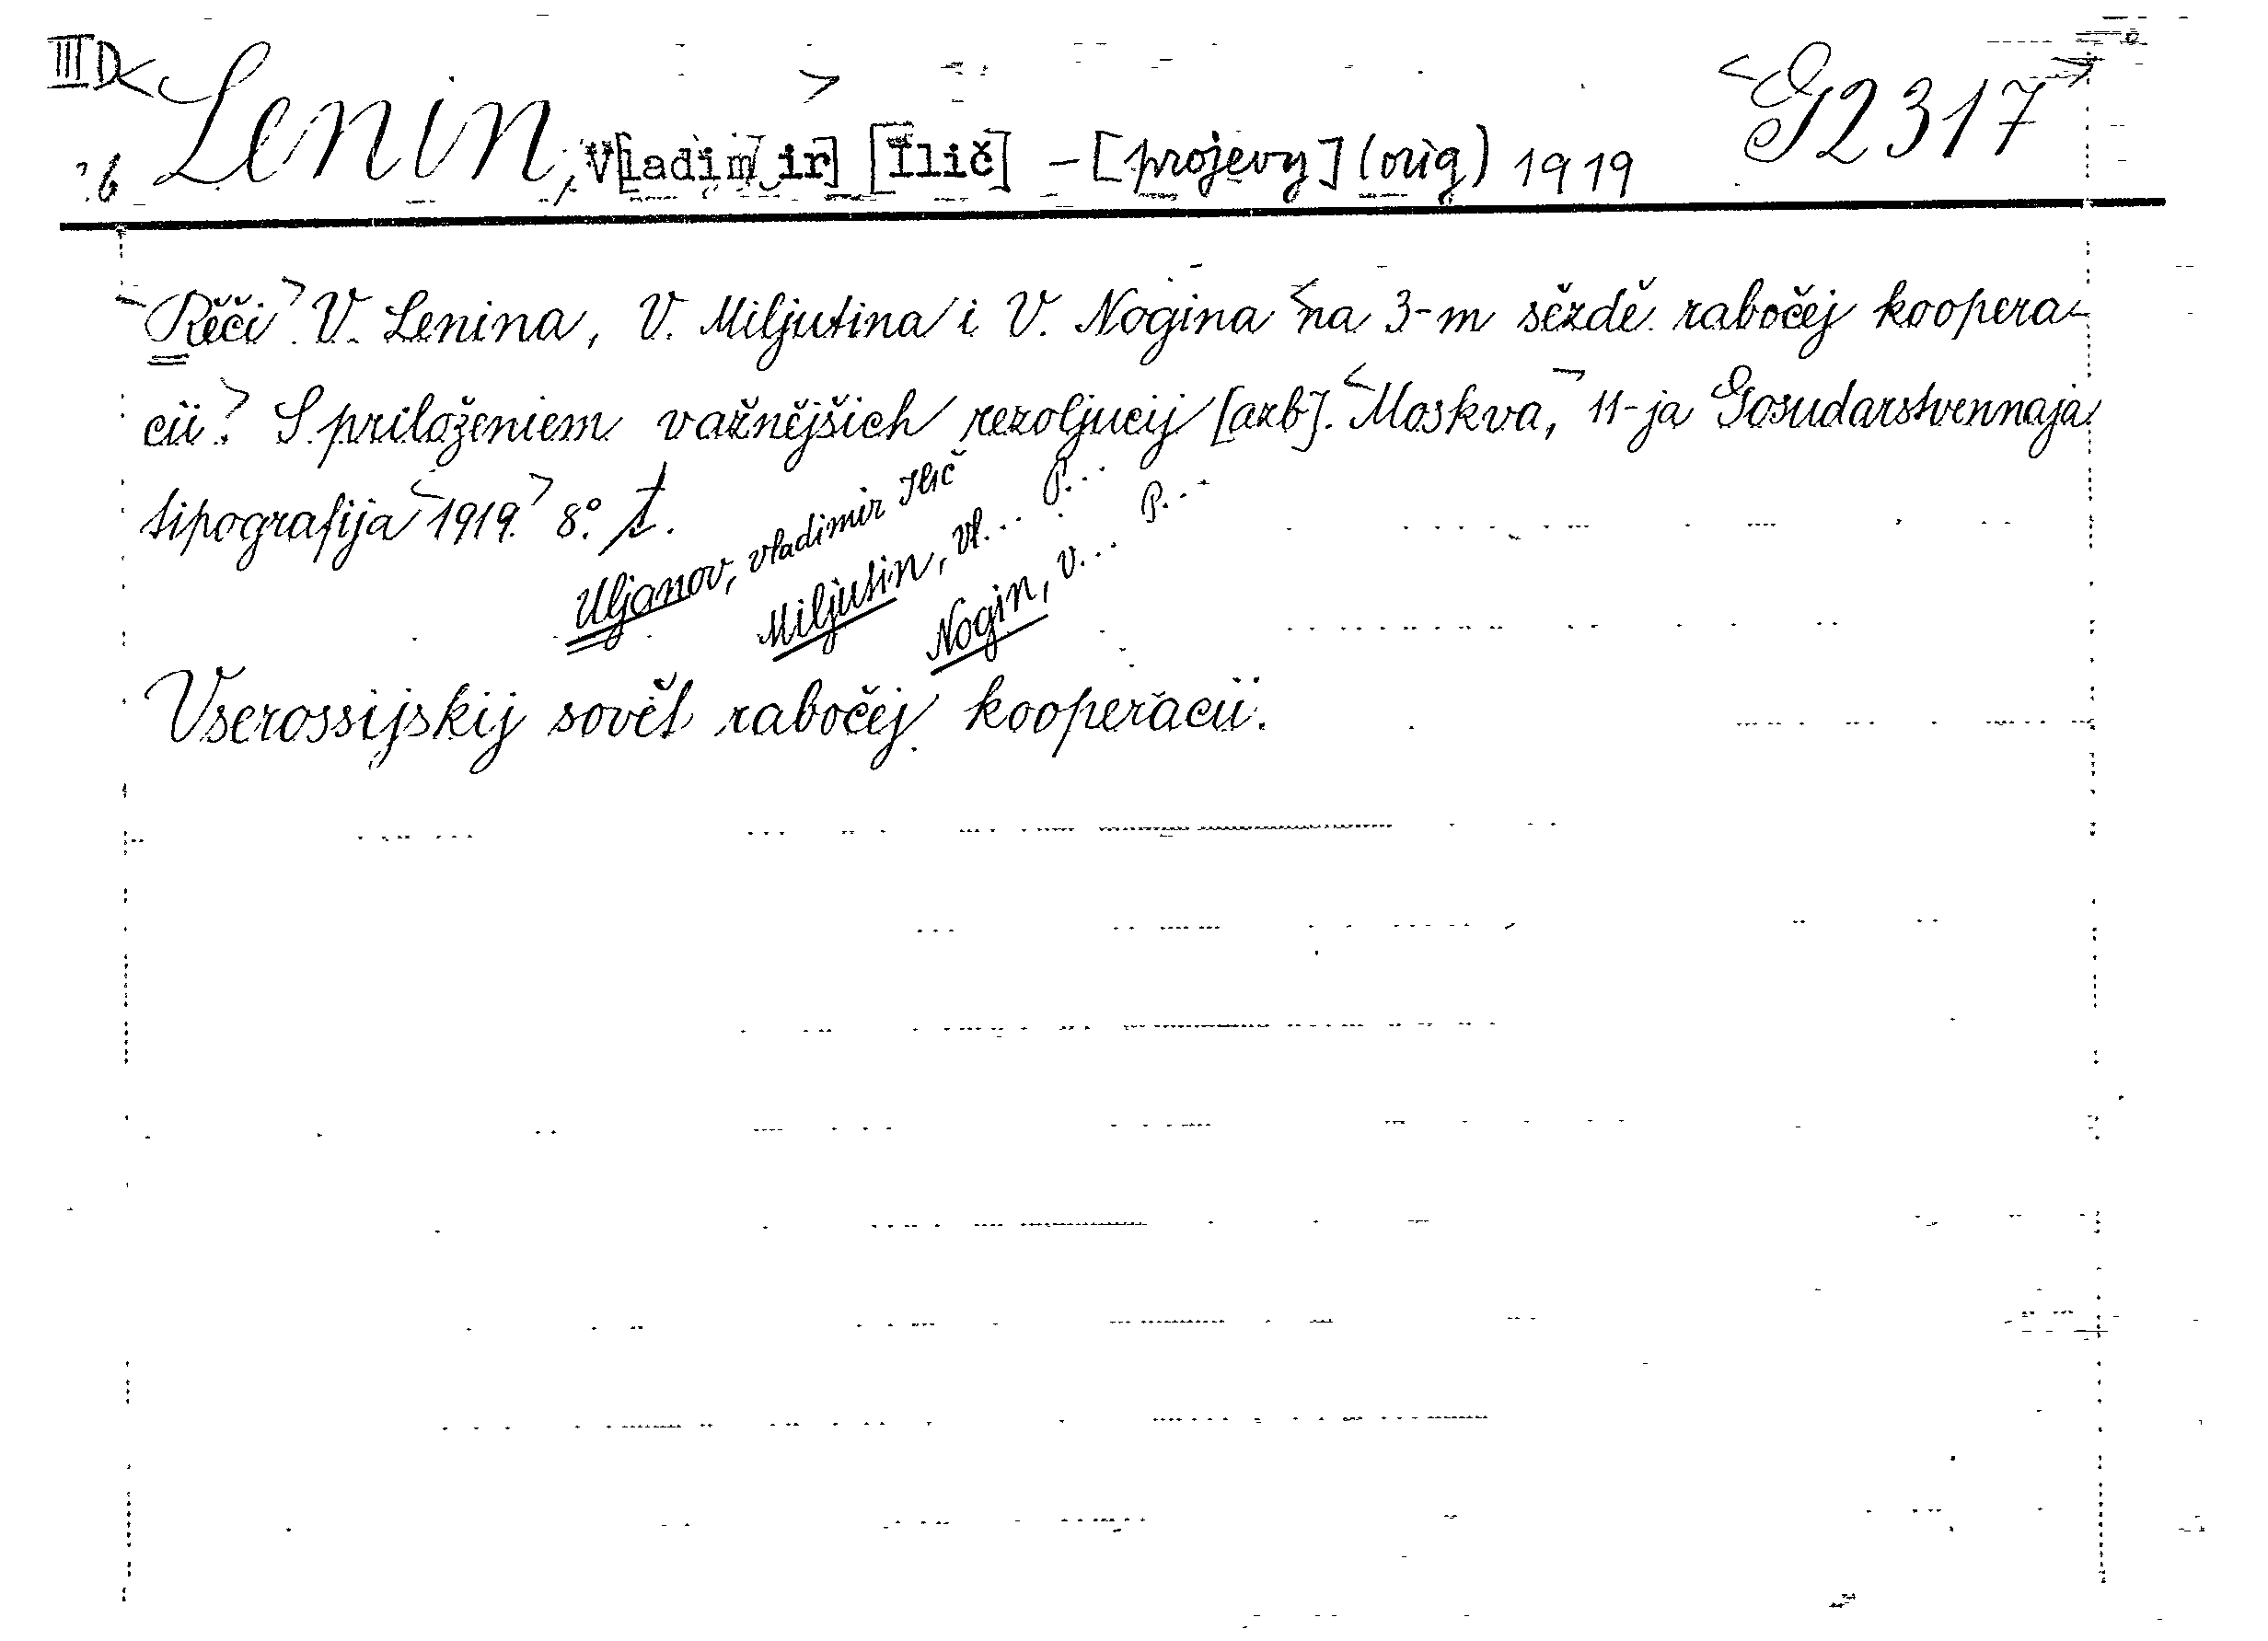 III D <Lenin,> V[ladim ir] [Ilič] - [projevy] (orig) 1919 <G 2317>
<Rěči> V. Lenina, V. Miljutina i V. Nogina <na 3-m sězdě rabočej koopera-
cii.> S priloženiem važnějšich rezoljucij [azb]. <Moskva,> 11-ja Gosudarstvennaja
tipografija <1919.> 8°.
Uljanov, Vladimir Ilič
Miljutin, Vl... P...
Nogin, V... P...
Vserossijskij sovět rabočej kooperacii.